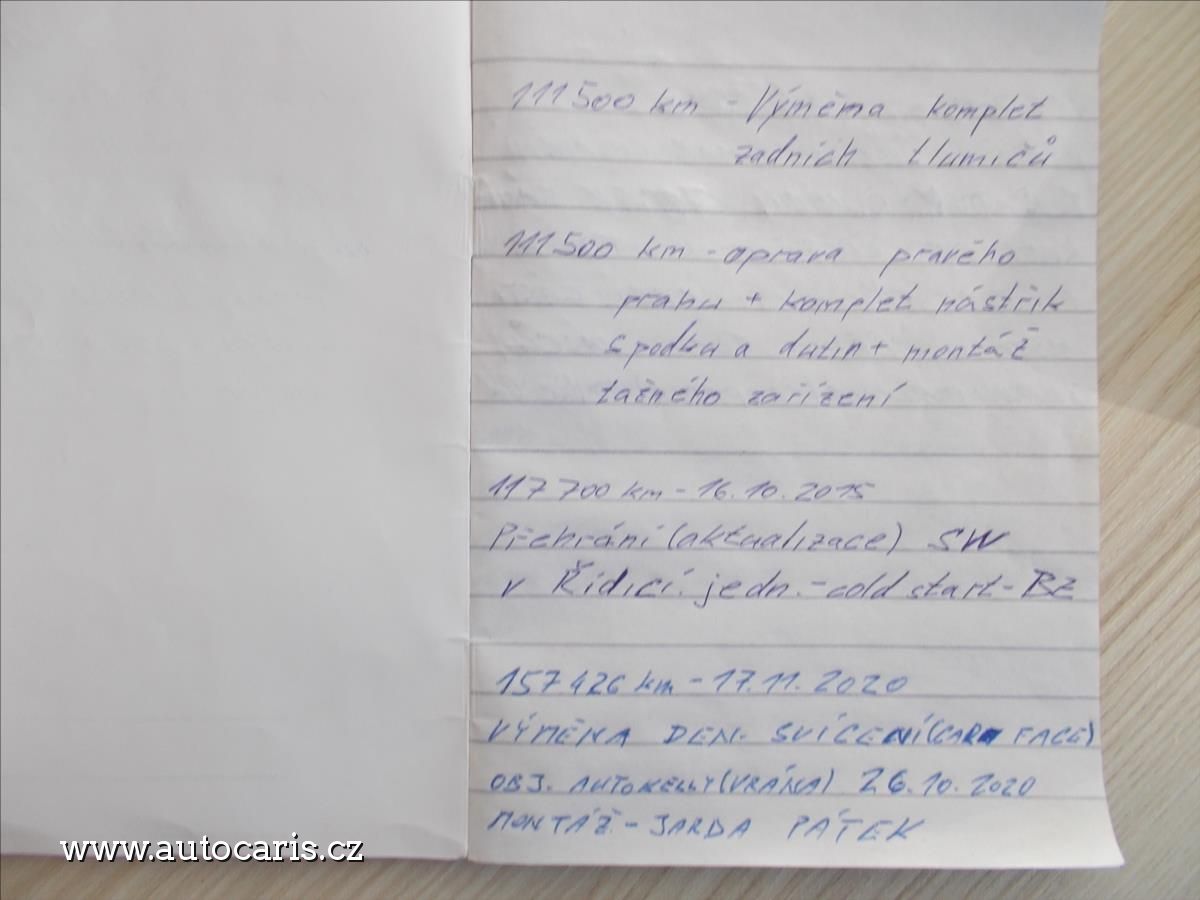 111500 km - Výměna komplet
zadních tlumičů
111500 km - oprava pravého
prahu + komplet nástřik
spodku a dutin + montáž
tažného zařízení
117 700 km - 16.10.2015
Přehrání (aktualizace) SW
v Řídící. jedn. - cold start - BZ
157426 km - 17.11.2020
VÝMĚNA DEN. SVÍCENÍ (CAR FACE)
OBJ. AUTOKELLY (VRÁNA) 26.10.2020
MONTÁŽ - JARDA PÁTEK
www.autocaris.cz